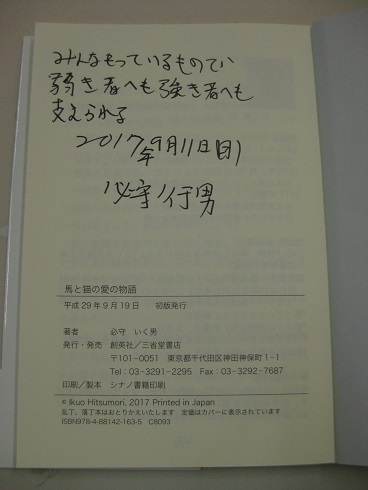 みんなもっているものでい
弱き者へも強き者へも
支えられる
2017年9月11日(月)
必守 行男
馬と猫の愛の物語
平成29年9月19日 初版発行
著者 必守 いく男
発行・発売 創英社/三省堂書店
〒101-0051 東京都千代田区神田神保町1-1
Tel:03-3291-2295 Fax:03-3292-7687
印刷/製本 シナノ書籍印刷
© Ikuo Hitsumori, 2017 Printed in Japan
乱丁、落丁本はおとりかえいたします 定価はカバーに表示されています
ISBN978-4-88142-163-5 C8093